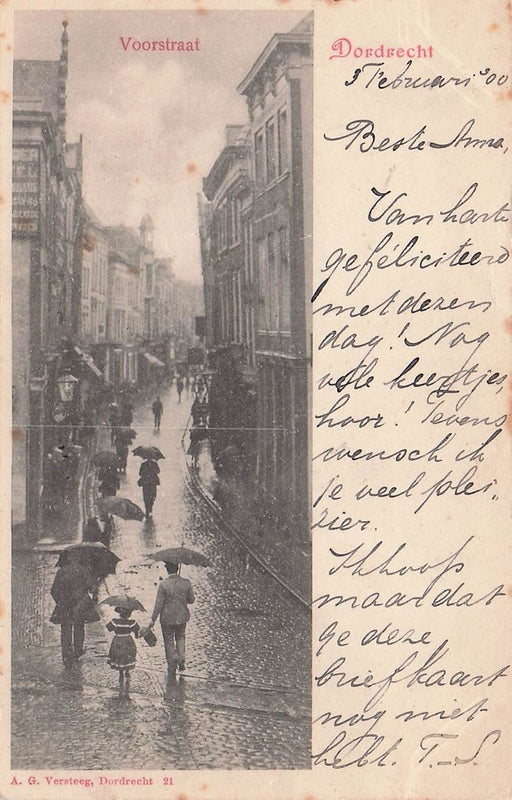 Voorstraat
Dordrecht
3 Februari '00
Beste Anna,
Van harte
gefeliciteerd
met dezen
dag! Nog
vele keertjes,
hoor! Tevens
wensch ik
je veel plei„
zier.
Ik hoop
maar dat
ge deze
briefkaart
nog niet
hebt. T.-S.
A. G. Versteeg, Dordrecht 21